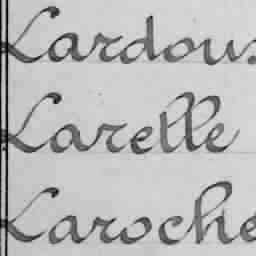 Lardous
Larelle
Laroche